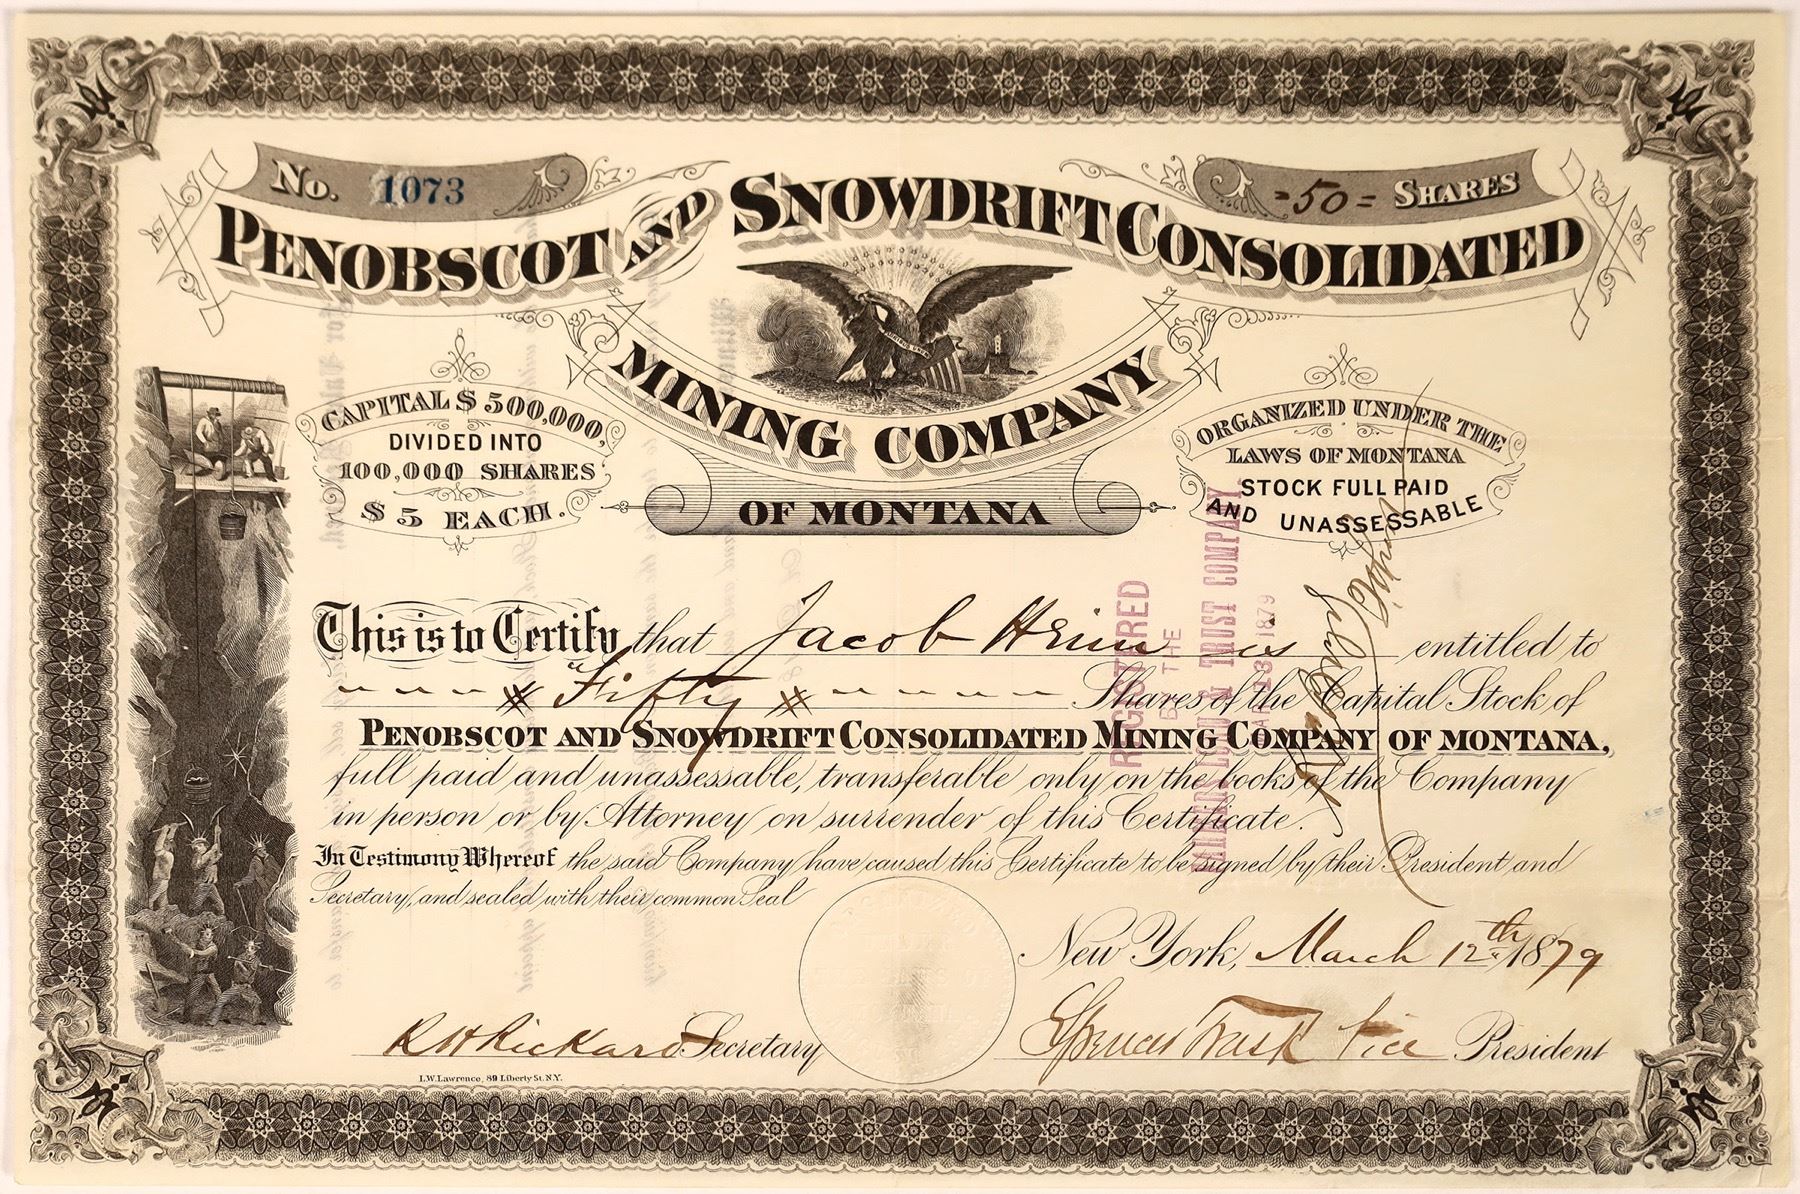 No. 1073
=50= SHARES
PENOBSCOT AND SNOWDRIFT CONSOLIDATED
MINING COMPANY
OF MONTANA
CAPITAL $500,000,
DIVIDED INTO
100,000 SHARES
$5 EACH.
ORGANIZED UNDER THE
LAWS OF MONTANA
STOCK FULL PAID
AND UNASSESSABLE
This is to Certify that Jacob is entitled to
Fifty Shares of the Capital Stock of
PENOBSCOT AND SNOWDRIFT CONSOLIDATED MINING COMPANY OF MONTANA,
full paid and unassessable, transferable only on the books of the Company
in person or by Attorney on surrender of this Certificate.
In Testimony Whereof the said Company have caused this Certificate to be signed by their President and
Secretary, and sealed with their common Seal
New York, March 12th 1879
R H Rickard Secretary
Spencer Trask Vice President
L.W. Lawrence, 89 Liberty St. N.Y.
REGISTERED
BY THE
TRUST COMPANY.
13 1879